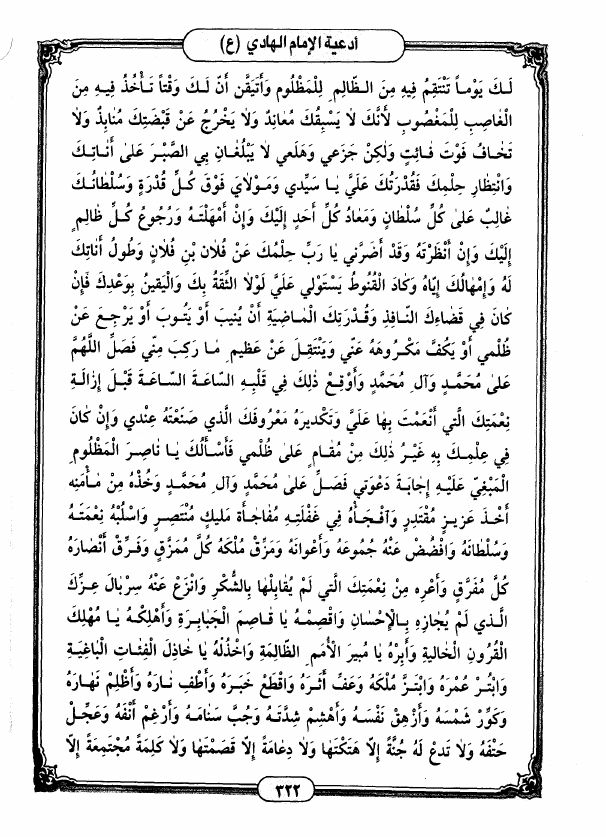 أدعية الإمام الهادي (ع)
لَكَ يَوْماً تَنْتَقِمُ فِيهِ مِنَ الظّالِمِ لِلْمَظْلُومِ وَأَتَيَقَّن أَنَّ لَكَ وَقْتاً تَأْخُذُ فِيهِ مِنَ
الْغاصِبِ لِلْمَغْصُوبِ لأَنَّكَ لاَ يَسْبِقُكَ مُعانِدٌ وَلاَ يَخْرُجُ عَنْ قَبْضَتِكَ مُنابِذٌ وَلاَ
تَخافُ فَوْتَ فائِتٍ وَلكِنْ جَزَعي وَهَلَعي لاَ يَبْلُغانِ بِي الصَّبْرَ عَلى أَناتِكَ
وَانْتِظارِ حِلْمِكَ فَقُدْرَتُكَ عَلَيَّ يا سَيِّدي وَمَوْلايَ فَوْقَ كُلِّ قُدْرَةٍ وَسُلْطانُكَ
غالِبٌ عَلى كُلِّ سُلْطانٍ وَمَعادُ كُلِّ أَحَدٍ إِلَيْكَ وَإِنْ أَمْهَلْتَهُ وَرُجُوعُ كُلِّ ظالِمٍ
إِلَيْكَ وَإِنْ أَنْظَرْتَهُ وَقَدْ أَضَرَّني يا رَبِّ حِلْمُكَ عَنْ فُلانِ بْنِ فُلانٍ وَطُولُ أَناتِكَ
لَهُ وَإِمْهالُكَ إِيّاهُ وَكادَ الْقُنُوطُ يَسْتَوْلي عَلَيَّ لَوْلا الثِّقَةُ بِكَ وَالْيَقينُ بِوَعْدِكَ فَإِنْ
كانَ فِي قَضاءِكَ النّافِذِ وَقُدْرَتِكَ الْماضِيَةِ أَنْ يُنيبَ أَوْ يَتُوبَ أَوْ يَرْجِعَ عَنْ
ظُلْمي أَوْ يَكُفَّ مَكْرُوهَهُ عَنّي وَيَنْتَقِلَ عَنْ عَظيمِ ما رَكِبَ مِنّي فَصَلِّ اللَّهُمَّ
عَلى مُحَمَّدٍ وَآلِ مُحَمَّدٍ وَأَوْقِعْ ذلِكَ فِي قَلْبِهِ السّاعَةَ السّاعَةَ قَبْلَ إِزالَةِ
نِعْمَتِكَ الَّتي أَنْعَمْتَ بِها عَلَيَّ وَتَكْديرَهُ مَعْرُوفَكَ الَّذي صَنَعْتَهُ عِنْدي وَإِنْ كانَ
فِي عِلْمِكَ بِهِ غَيْرُ ذلِكَ مِنْ مُقامٍ عَلى ظُلْمي فَأَسْأَلُكَ يا ناصِرَ الْمَظْلُومِ
الْمَبْغِيِّ عَلَيْهِ إِجابَةَ دَعْوَتي فَصَلِّ عَلى مُحَمَّدٍ وَآلِ مُحَمَّدٍ وَخُذْهُ مِنْ مَأْمَنِهِ
أَخْذَ عَزيزٍ مُقْتَدِرٍ وَافْجَأْهُ فِي غَفْلَتِهِ مُفاجَأَةَ مَليكٍ مُنْتَصِرٍ وَاسْلُبْهُ نِعْمَتَهُ
وَسُلْطانَهُ وَافْضُضْ عَنْهُ جُمُوعَهُ وَأَعْوانَهُ وَمَزِّقْ مُلْكَهُ كُلَّ مُمَزَّقٍ وَفَرِّقْ أَنْصارَهُ
كُلَّ مُفَرَّقٍ وَأَعْرِهِ مِنْ نِعْمَتِكَ الَّتي لَمْ يُقابِلْها بِالشُّكْرِ وَانْزَعْ عَنْهُ سِرْبالَ عِزِّكَ
الَّذي لَمْ يُجازِهِ بِالإِحْسانِ وَاقْصِمْهُ يا قاصِمَ الْجَبابِرَةِ وَأَهْلِكْهُ يا مُهْلِكَ
الْقُرُونِ الْخالِيَةِ وَأَبِرْهُ يا مُبيرَ الأُمَمِ الظّالِمَةِ وَاخْذُلْهُ يا خاذِلَ الْفِئاتِ الْباغِيَةِ
وَابْتُرْ عُمْرَهُ وَابْتَزَّ مُلْكَهُ وَعَفِّ أَثَرَهُ وَاقْطَعْ خَبَرَهُ وَأَطْفِ نارَهُ وَأَظْلِمْ نَهارَهُ
وَكَوِّرْ شَمْسَهُ وَأَزْهِقْ نَفْسَهُ وَأَهْشِمْ شِدَّتَهُ وَجُبَّ سَنامَهُ وَأَرْغِمْ أَنْفَهُ وَعَجِّلْ
حَتْفَهُ وَلاَ تَدَعْ لَهُ جُنَّةً إِلاّ هَتَكْتَها وَلاَ دِعامَةً إِلاّ قَصَمْتَها وَلاَ كَلِمَةً مُجْتَمِعَةً إِلاّ
٣٢٢